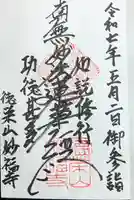 令和七年五月二日御参詣
如説修行
南無妙法蓮華経
功徳甚多
徳栄山妙法寺